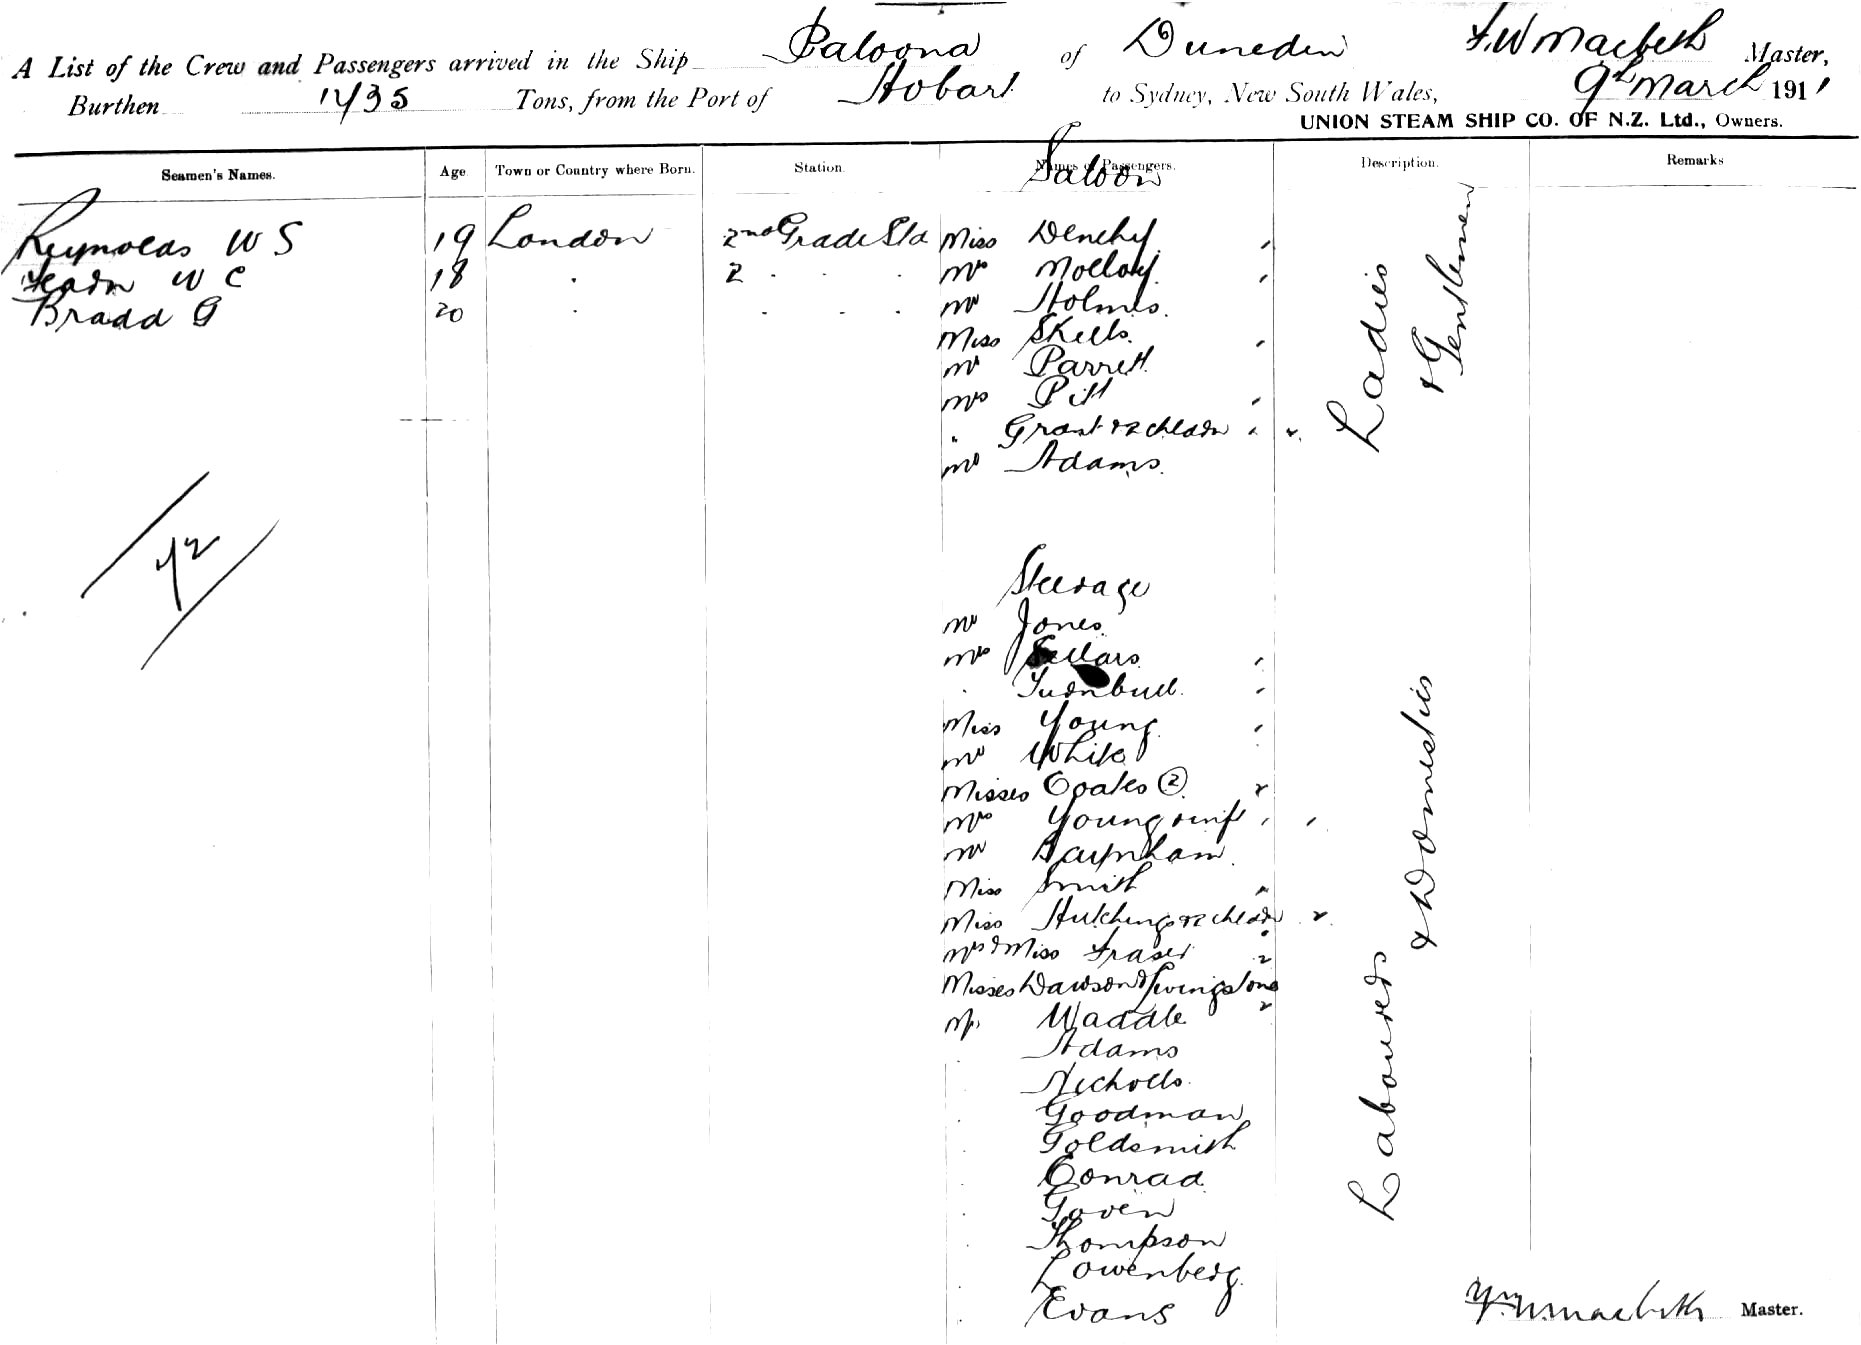 A List of the Crew and Passengers arrived in the Ship Paloona of Duneden F. W Macbeth Master,
Burthen 1735 Tons, from the Port of Hobart to Sydney, New South Wales, 9th March 1911
UNION STEAM SHIP CO. OF N.Z. Ltd., Owners.
Seamen's Names. Age Town or Country where Born. Station. Names of Passengers. Description. Remarks
Saloon
Reynolds W S 19 London 2nd Grade Std Miss Denehy
W C 18 . 2 . . . Mrs Molloy
Bradd G 20 . . . . Mr Holmes.
Miss Skells.
Mr Parrett.
Mrs Pitt
" Grant & 2 children
Mr Adams.
Ladies
& Gentlemen
72
Steerage
Mr Jones.
Mrs Sellars.
. Turnbull.
Miss Young
Mr White
Misses Coates ②.
Mrs Young & inft
Mr Baynham.
Miss Smith
Miss Hutchings & 2 children
Mrs & Miss Fraser
Misses Dawson & Livingstone
Mr. Waddle
. Adams
. Nicholls.
. Goodman
. Goldsmith
. Conrad
. Goven
. Thompson
. Lowenberg.
. Evans
Labourers
& Domestics
W. Macbeth Master.